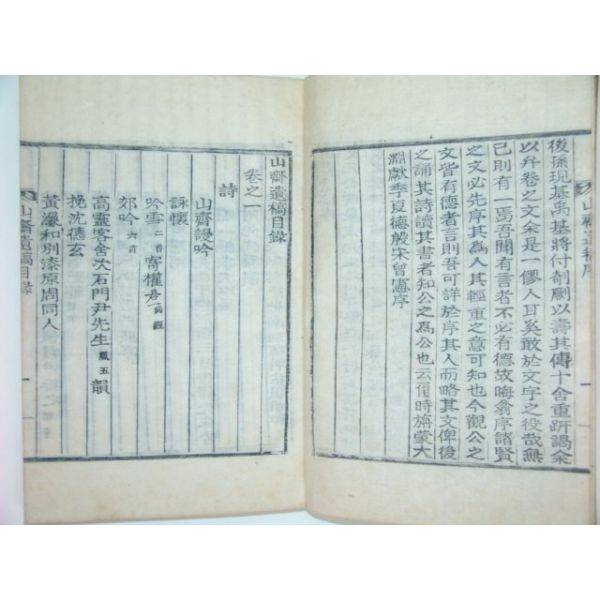 後孫現基禹基將付剞劂以壽其傳十舍重趼謁余
以弁卷之文余是一僇人耳奚敢於文字之役哉無
已則有一焉吾聞有言者不必有德故晦翁序諸賢
之文必先序其爲人其輕重之意可知也今觀公之
文皆有德者言則吾可詳於序其人而略其文俾後
之誦其詩讀其書者知公之爲公也云爾時旃蒙大
淵獻季夏德殷宋曾憲序
山齋遺稿序
山齋遺稿目錄
卷之一
詩
山齋謾吟
詠懷
吟雪二首 寄權君
郊吟六首
高靈客舍次石門尹先生鳳五韻
挽沈德玄
黃瀑和別漆原周同人
山齋遺稿目錄
一